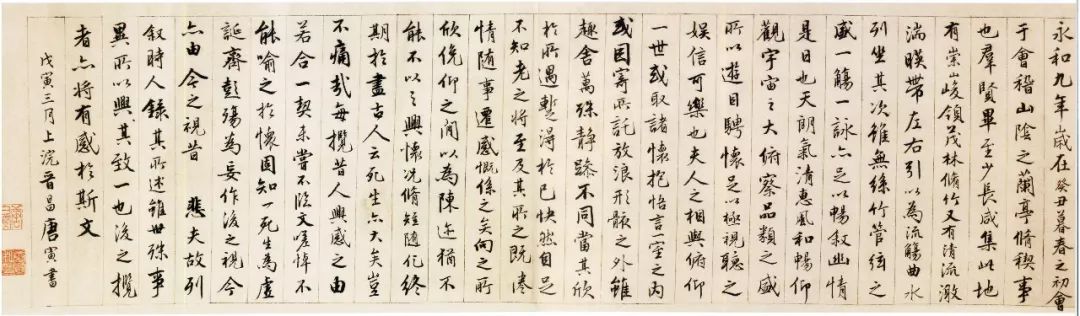 永和九年歲在癸丑暮春之初會
于會稽山陰之蘭亭脩稧事
也羣賢畢至少長咸集此地
有崇山峻領茂林脩竹又有清流激
湍暎帶左右引以為流觴曲水
列坐其次雖無絲竹管絃之
盛一觴一詠亦足以暢敘幽情
是日也天朗氣清惠風和暢仰
觀宇宙之大俯察品類之盛
所以遊目騁懷足以極視聽之
娛信可樂也夫人之相與俯仰
一世或取諸懷抱悟言一室之內
或因寄所託放浪形骸之外雖
趣舍萬殊靜躁不同當其欣
於所遇暫得於己快然自足
不知老之將至及其所之既惓
情隨事遷感慨係之矣向之所
欣俛仰之閒以為陳迹猶不
能不以之興懷況脩短隨化終
期於盡古人云死生亦大矣豈
不痛哉每攬昔人興感之由
若合一契未嘗不臨文嗟悼不
能喻之於懷固知一死生為虛
誕齊彭殤為妄作後之視今
亦由今之視昔 悲夫故列
敘時人錄其所述雖世殊事
異所以興其致一也後之攬
者亦將有感於斯文
戊寅三月上浣晉昌唐寅書